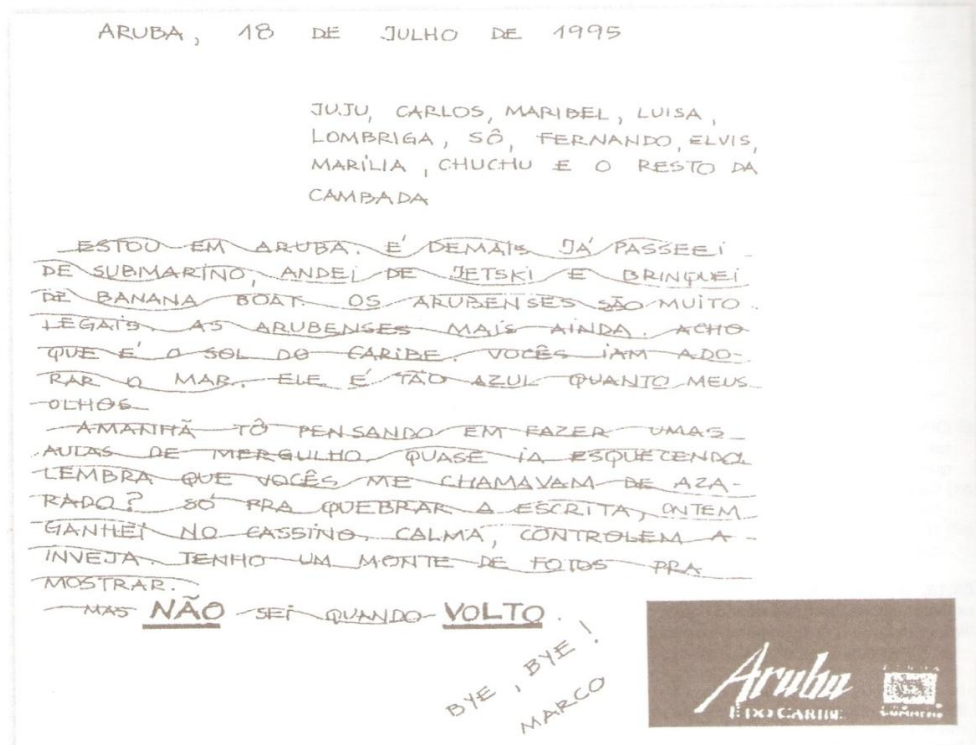 ARUBA, 18 DE JULHO DE 1995
JUJU, CARLOS, MARIBEL, LUISA,
LOMBRIGA, SÔ, FERNANDO, ELVIS,
MARÍLIA, CHUCHU E O RESTO DA
CAMBADA
ESTOU EM ARUBA. É DEMAIS JÁ PASSEEI
DE SUBMARINO, ANDEI DE JETSKI E BRINQUEI
DE BANANA BOAT. OS ARUBENSES SÃO MUITO
LEGAIS. AS ARUBENSES MAIS AINDA. ACHO
QUE É O SOL DO CARIBE. VOCÊS IAM ADO-
RAR O MAR. ELE É TÃO AZUL QUANTO MEUS
OLHOS
AMANHÃ TÔ PENSANDO EM FAZER UMAS
AULAS DE MERGULHO. QUASE IA ESQUECENDO.
LEMBRA QUE VOCÊS ME CHAMAVAM DE AZA-
RADO? SÓ PRA QUEBRAR A ESCRITA, ONTEM
GANHEI NO CASSINO. CALMA, CONTROLEM A
INVEJA. TENHO UM MONTE DE FOTOS PRA
MOSTRAR.
MAS NÃO SEI QUANDO VOLTO.
BYE, BYE!
MARCO
Aruba
É DO CARIBE